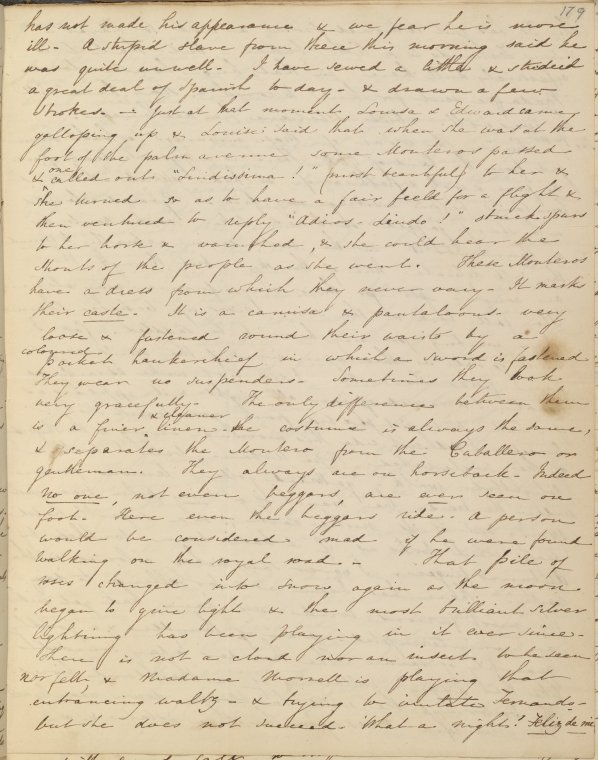 179
has not made his appearance & we fear he is more
ill - A stupid slave from there this morning said he
was quite unwell - I have sewed a little & studied
a great deal of Spanish to day - & drawn a few
strokes. - Just at that moment Louisa & Edward came
galloping up & Louisa said that when she was at the
foot of the palm avenue some Monteros passed
& one called out "Lindissima!" (most beautiful) to her &
she turned so as to have a fair field for a flight &
then ventured to reply "Adios - Lindo!" stuck spurs
to her horse & vanished, & she could hear the
shouts of the people as she went. These Monteros
have a dress from which they never vary - It marks
their caste - It is a camisa & pantaloons - very
loose & fastened round their waists by a
coloured pocket hankerchief in which a sword is fastened -
They wear no suspenders - Sometimes they look
very gracefully - The only difference between them
is a finer & cleaner linen - the costume is always the same,
& separates the Montero from the Caballero or
gentleman. They always are on horseback - Indeed
no one, not even beggars, are ever seen on
foot - Here even the beggars ride - A person
would be considered mad if he were found
walking on the royal road. - That pile of
roses changed into snow again as the moon
began to give light & the most brilliant silver
lightning has been playing in it ever since -
There is not a cloud nor an insect to be seen
nor felt, & Madame Morrell is playing that
entrancing waltz - & trying to imitate Fernando -
but she does not succeed. What a night! Feliz de mi